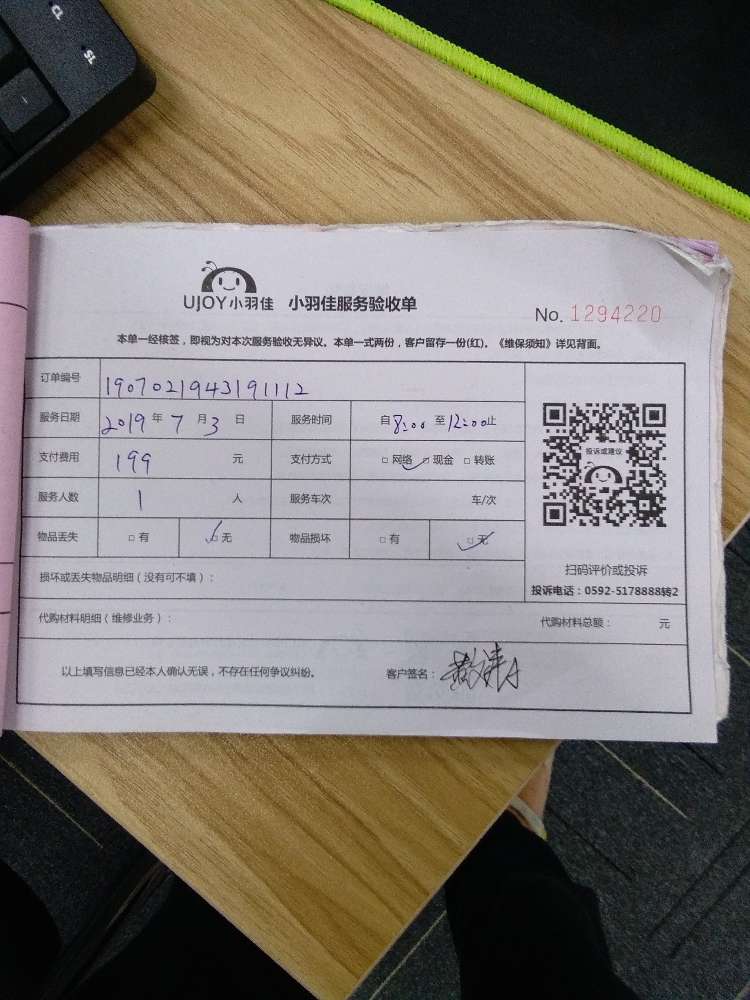 UJOY小羽佳 小羽佳服务验收单
No. 1294220
本单一经核签，即视为对本次服务验收无异议。本单一式两份，客户留存一份(红)。《维保须知》详见背面。
订单编号 1907021943191112
服务日期 2019年 7月 3日 服务时间 自8:00至12:00止
支付费用 199 元 支付方式 □网络 □现金 □转账
服务人数 1 人 服务车次 车/次
物品丢失 □有 □无 物品损坏 □有 □无
损坏或丢失物品明细（没有可不填）：
代购材料明细（维修业务）： 代购材料总额： 元
以上填写信息已经本人确认无误，不存在任何争议纠纷。 客户签名：
投诉或建议
扫码评价或投诉
投诉电话：0592-5178888转2